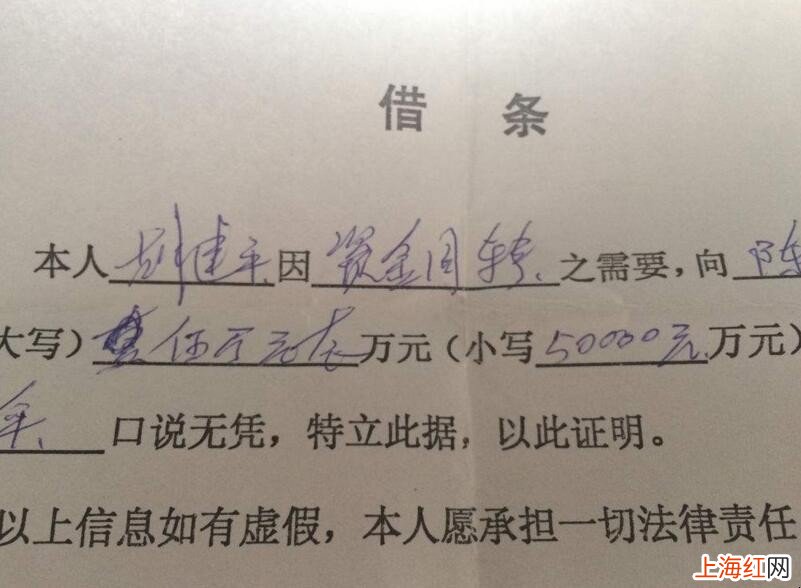 借 条
本人刘建平因资金周转之需要，向陈
大写）伍万元整万元（小写50000元万元）
年、口说无凭，特立此据，以此证明。
以上信息如有虚假，本人愿承担一切法律责任
上海红网